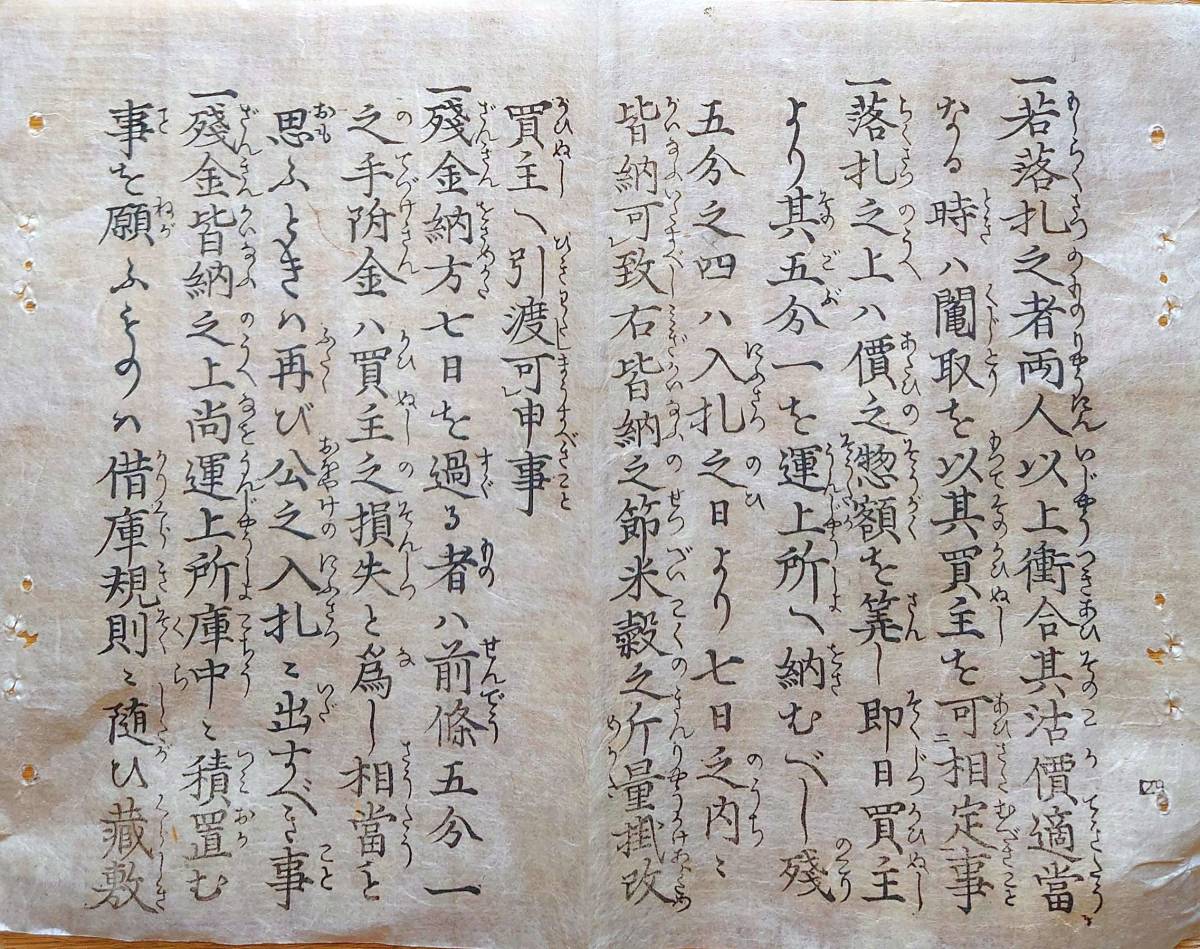 一若落札之者両人以上衝合其沽價適當
なる時ハ鬮取を以其買主を可相定事
一落札之上ハ價之惣額を筭し即日買主
より其五分一を運上所へ納むべし殘
五分之四ハ入札之日より七日之内ニ
皆納可致右皆納之節米穀之斤量掛改
買主へ引渡可申事
一殘金納方七日を過る者ハ前條五分一
之手附金ハ買主之損失と爲し相當と
思ふときハ再び公之入札ニ出すべき事
一殘金皆納之上尚運上所庫中ニ積置む
事を願ふものハ借庫規則ニ随ひ藏敷